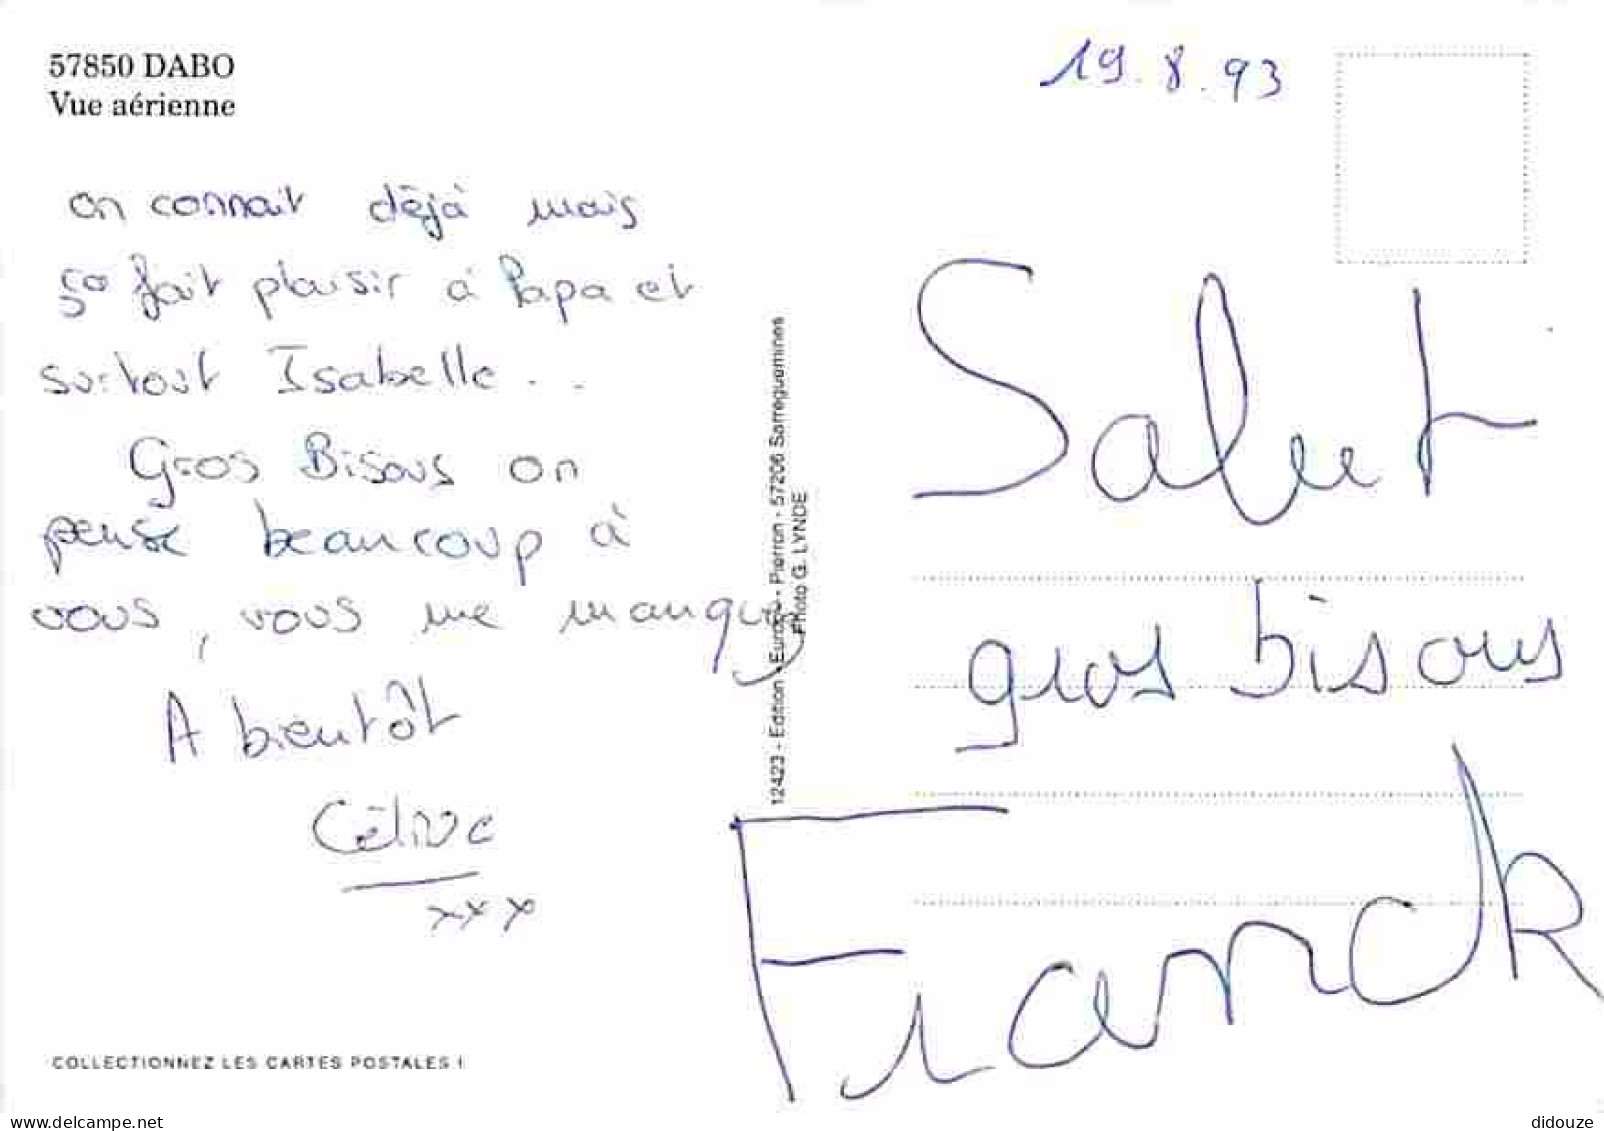 57850 DABO
Vue aérienne
on connait déjà mais
ça fait plaisir à Papa et
surtout Isabelle...
Gros Bisous on
pense beaucoup à
vous, vous me manquez
A bientôt
Céline
xxx
COLLECTIONNEZ LES CARTES POSTALES !
12423 - Edition - Europe - Pierron - 57206 Sarreguemines
Photo G. LYNDE
19.8.93
Salut
gros bisous
Franck
delcampe.net
didouze